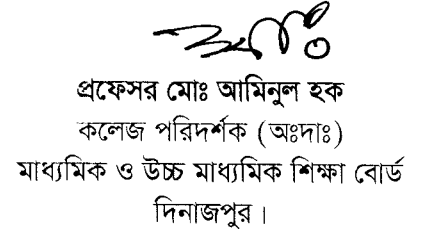 প্রফেসর মোঃ আমিনুল হক
কলেজ পরিদর্শক (অঃদাঃ)
মাধ্যমিক ও উচ্চ মাধ্যমিক শিক্ষা বোর্ড
দিনাজপুর।